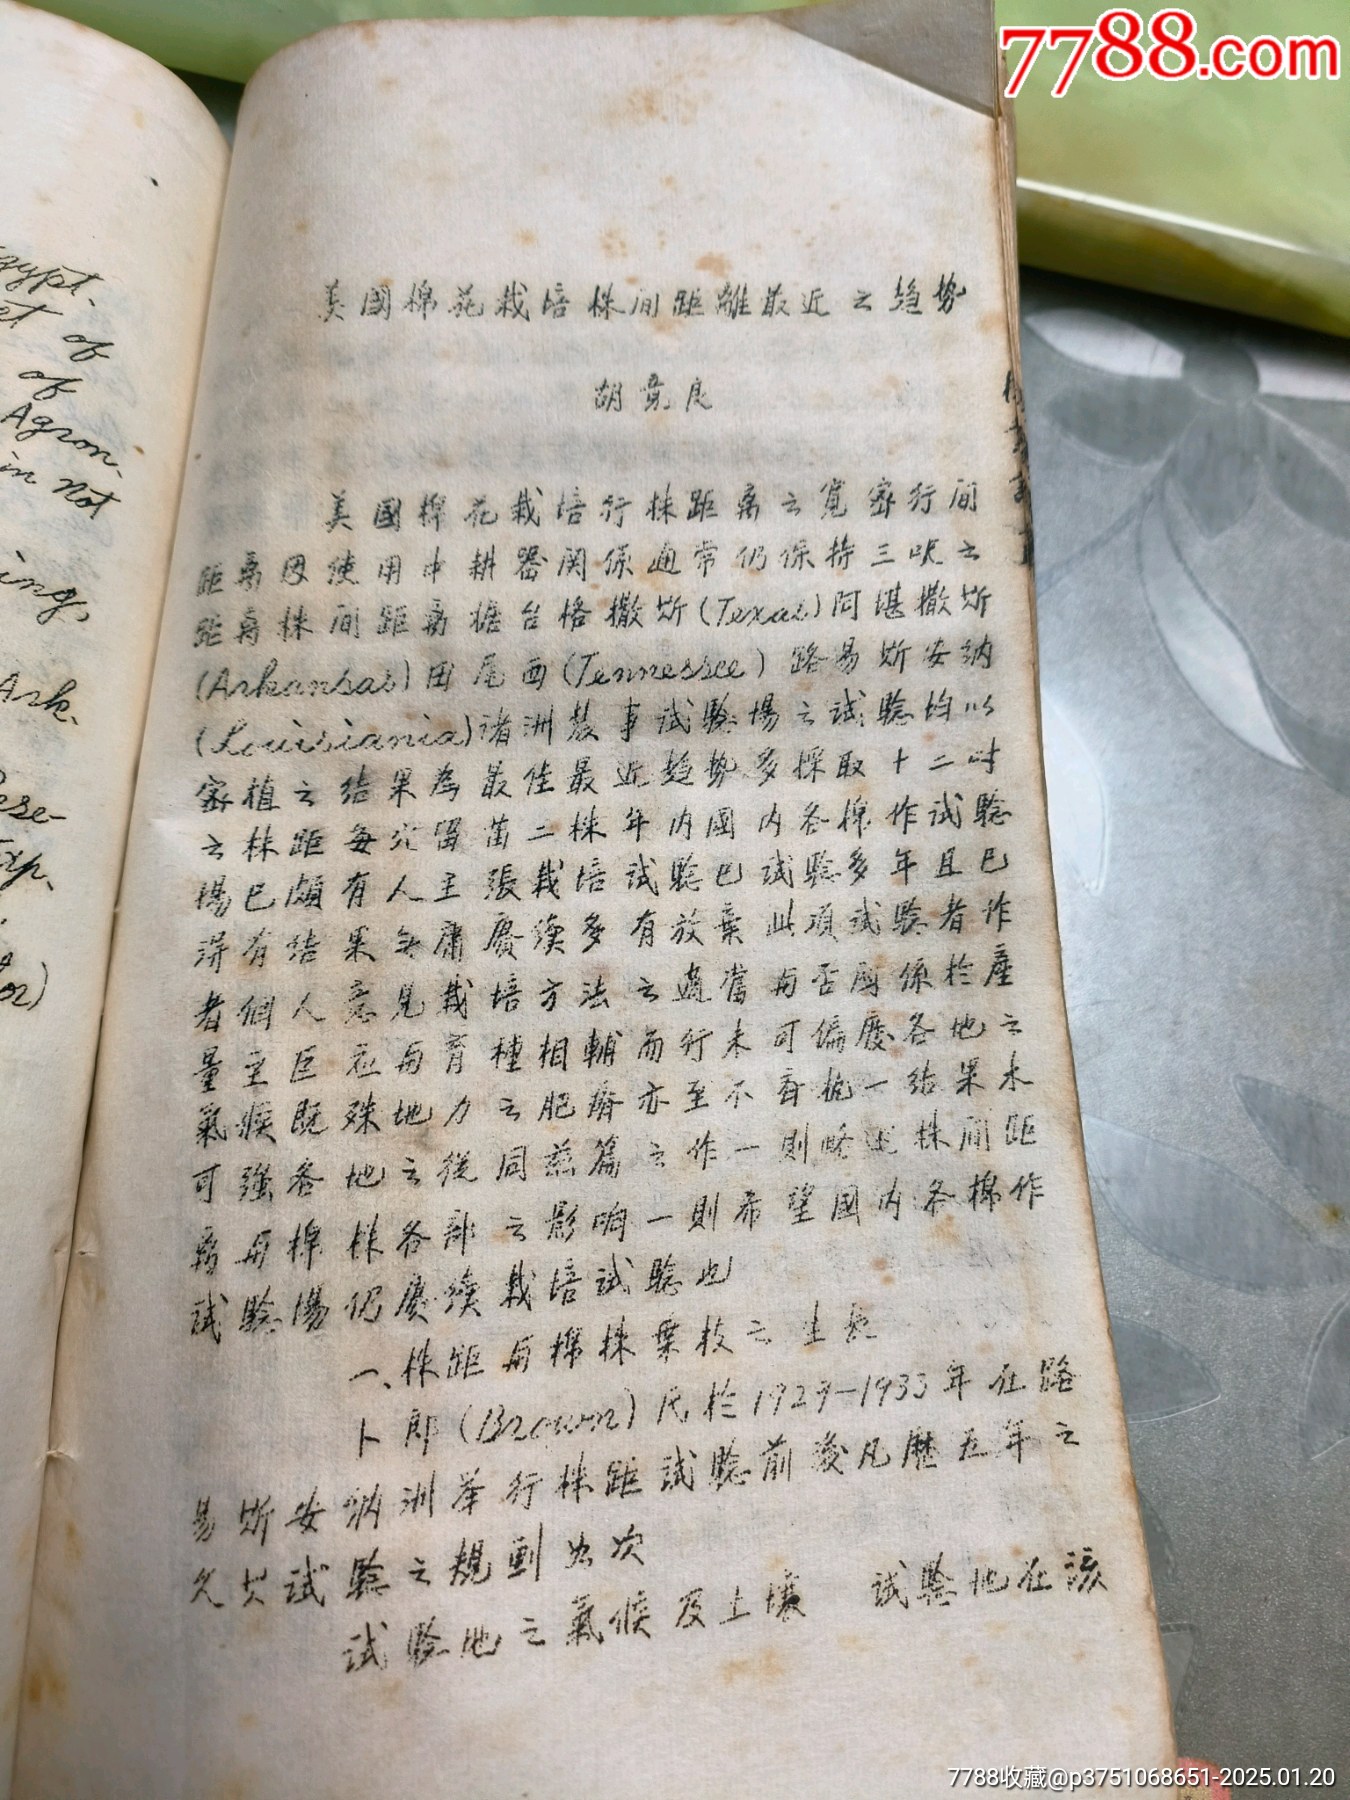 7788.com
gypt.
et of
of
Agron.
in Not
ing,
Ark.
ese-
xp.
美國棉花栽培株间距離最近之趋势
胡竟良
美國棉花栽培行株距离之寬密行间
距离因使用中耕器関係通常仍保持三呎之
距离株间距离據台格撒斯(Texas)阿堪撒斯
(Arkansas)田尾西(Tennessee)路易斯安納
(Louisiania)诸洲農事試驗場之試驗均以
密植之结果為最佳最近趋势多採取十二吋
之株距每穴留苗二株年内國内各棉作試驗
場已頗有人主張栽培試驗已試驗多年且已
得有结果無庸賡續多有放棄此項試驗者作
者個人意見栽培方法之適當与否関係於產
量至巨应与育種相輔而行未可偏廢各地之
氣候既殊地力之肥瘠亦至不齊執一结果未
可强各地之從同兹篇之作一則略述株间距
离与棉株各部之影响一則希望國内各棉作
試驗場仍賡續栽培試驗也
一、株距与棉株葉枝之生長
卜郎(Brown)氏於1929-1933年在路
易斯安納洲举行株距試驗前後凡歷五年之
久其試驗之規劃如次
試驗地之氣候及土壤 試驗地在該
7788收藏@p3751068651-2025.01.20